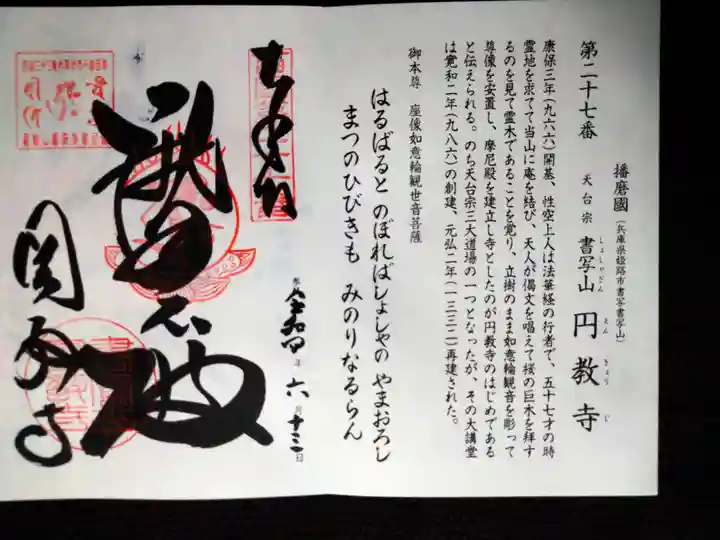 播磨國（兵庫県姫路市書写書写山）
第二十七番　天台宗　書写山　円教寺
しょしゃざん　えんぎょうじ
康保三年（九六六）開基、性空上人は法華経の行者で、五十七才の時
霊地を求てて当山に庵を結び、天人が偈文を唱えて桜の巨木を拝す
るのを見て霊木であることを覚り、立樹のまま如意輪観音を彫って
尊像を安置し、摩尼殿を建立し寺としたのが円教寺のはじめである
と伝えられる。のち天台宗三大道場の一つとなったが、その大講堂
は寛和二年（九八六）の創建、元弘二年（一三三二）再建された。
御本尊　座像如意輪観世音菩薩
はるばると　のぼればしょしゃの　やまおろし
まつのひびきも　みのりなるらん
年　六月十三日